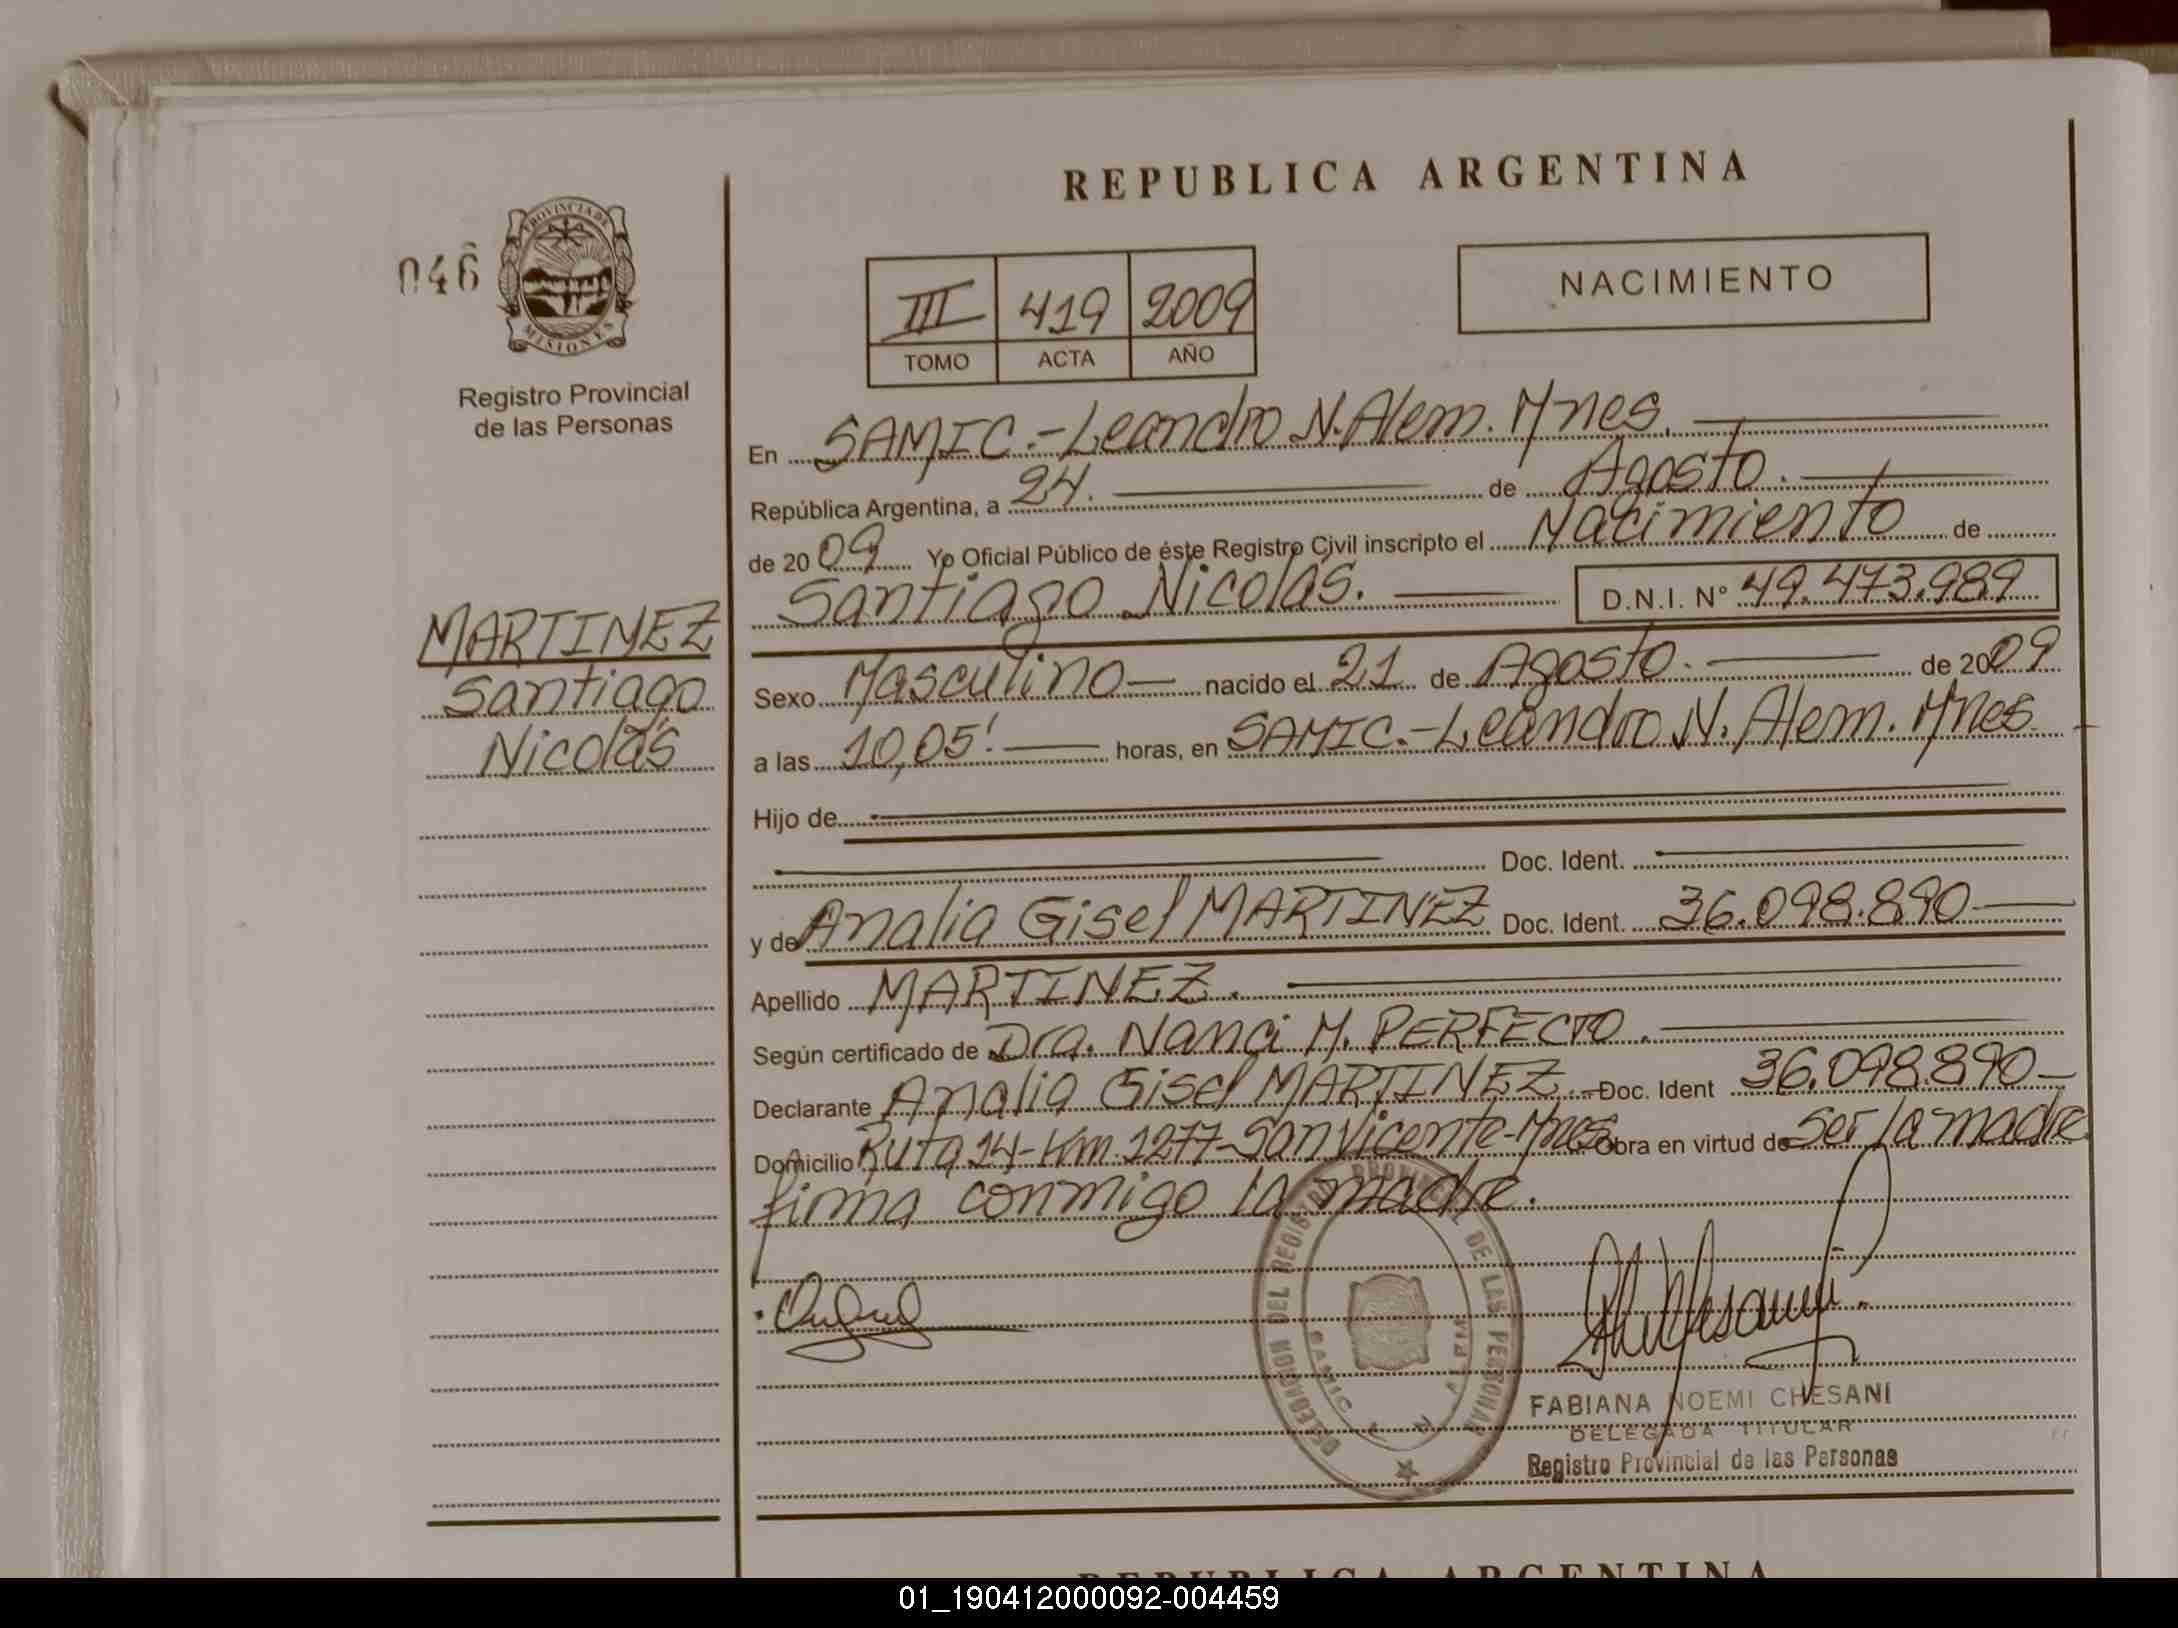 REPUBLICA ARGENTINA
046
PROVINCIA DE
MISIONES
Registro Provincial
de las Personas
III 419 2009
TOMO ACTA AÑO
NACIMIENTO
MARTINEZ
Santiago
Nicolás
En SAMIC.-Leandro N. Alem. Mnes.
República Argentina, a 24. de Agosto.
de 2009 Yo Oficial Público de éste Registro Civil inscripto el Nacimiento de
Santiago Nicolás. D.N.I. N° 49.473.989
Sexo Masculino nacido el 21 de Agosto. de 2009
a las 10,05' horas, en SAMIC.-Leandro N. Alem. Mnes
Hijo de
Doc. Ident.
y de Analia Gisel MARTINEZ Doc. Ident. 36.098.890
Apellido MARTINEZ.
Según certificado de Dra. Nanci M. PERFECTO.
Declarante Analia Gisel MARTINEZ.- Doc. Ident 36.098.890
Domicilio Ruta 14-Km.1277-San Vicente-Mnes Obra en virtud de Ser la madre
firma conmigo la madre.
DELEGACION DEL REGISTRO PROVINCIAL DE LAS PERSONAS
SAMIC
ALEM
FABIANA NOEMI CHESANI
DELEGADA TITULAR
Registro Provincial de las Personas
REPUBLICA ARGENTINA
01_190412000092-004459